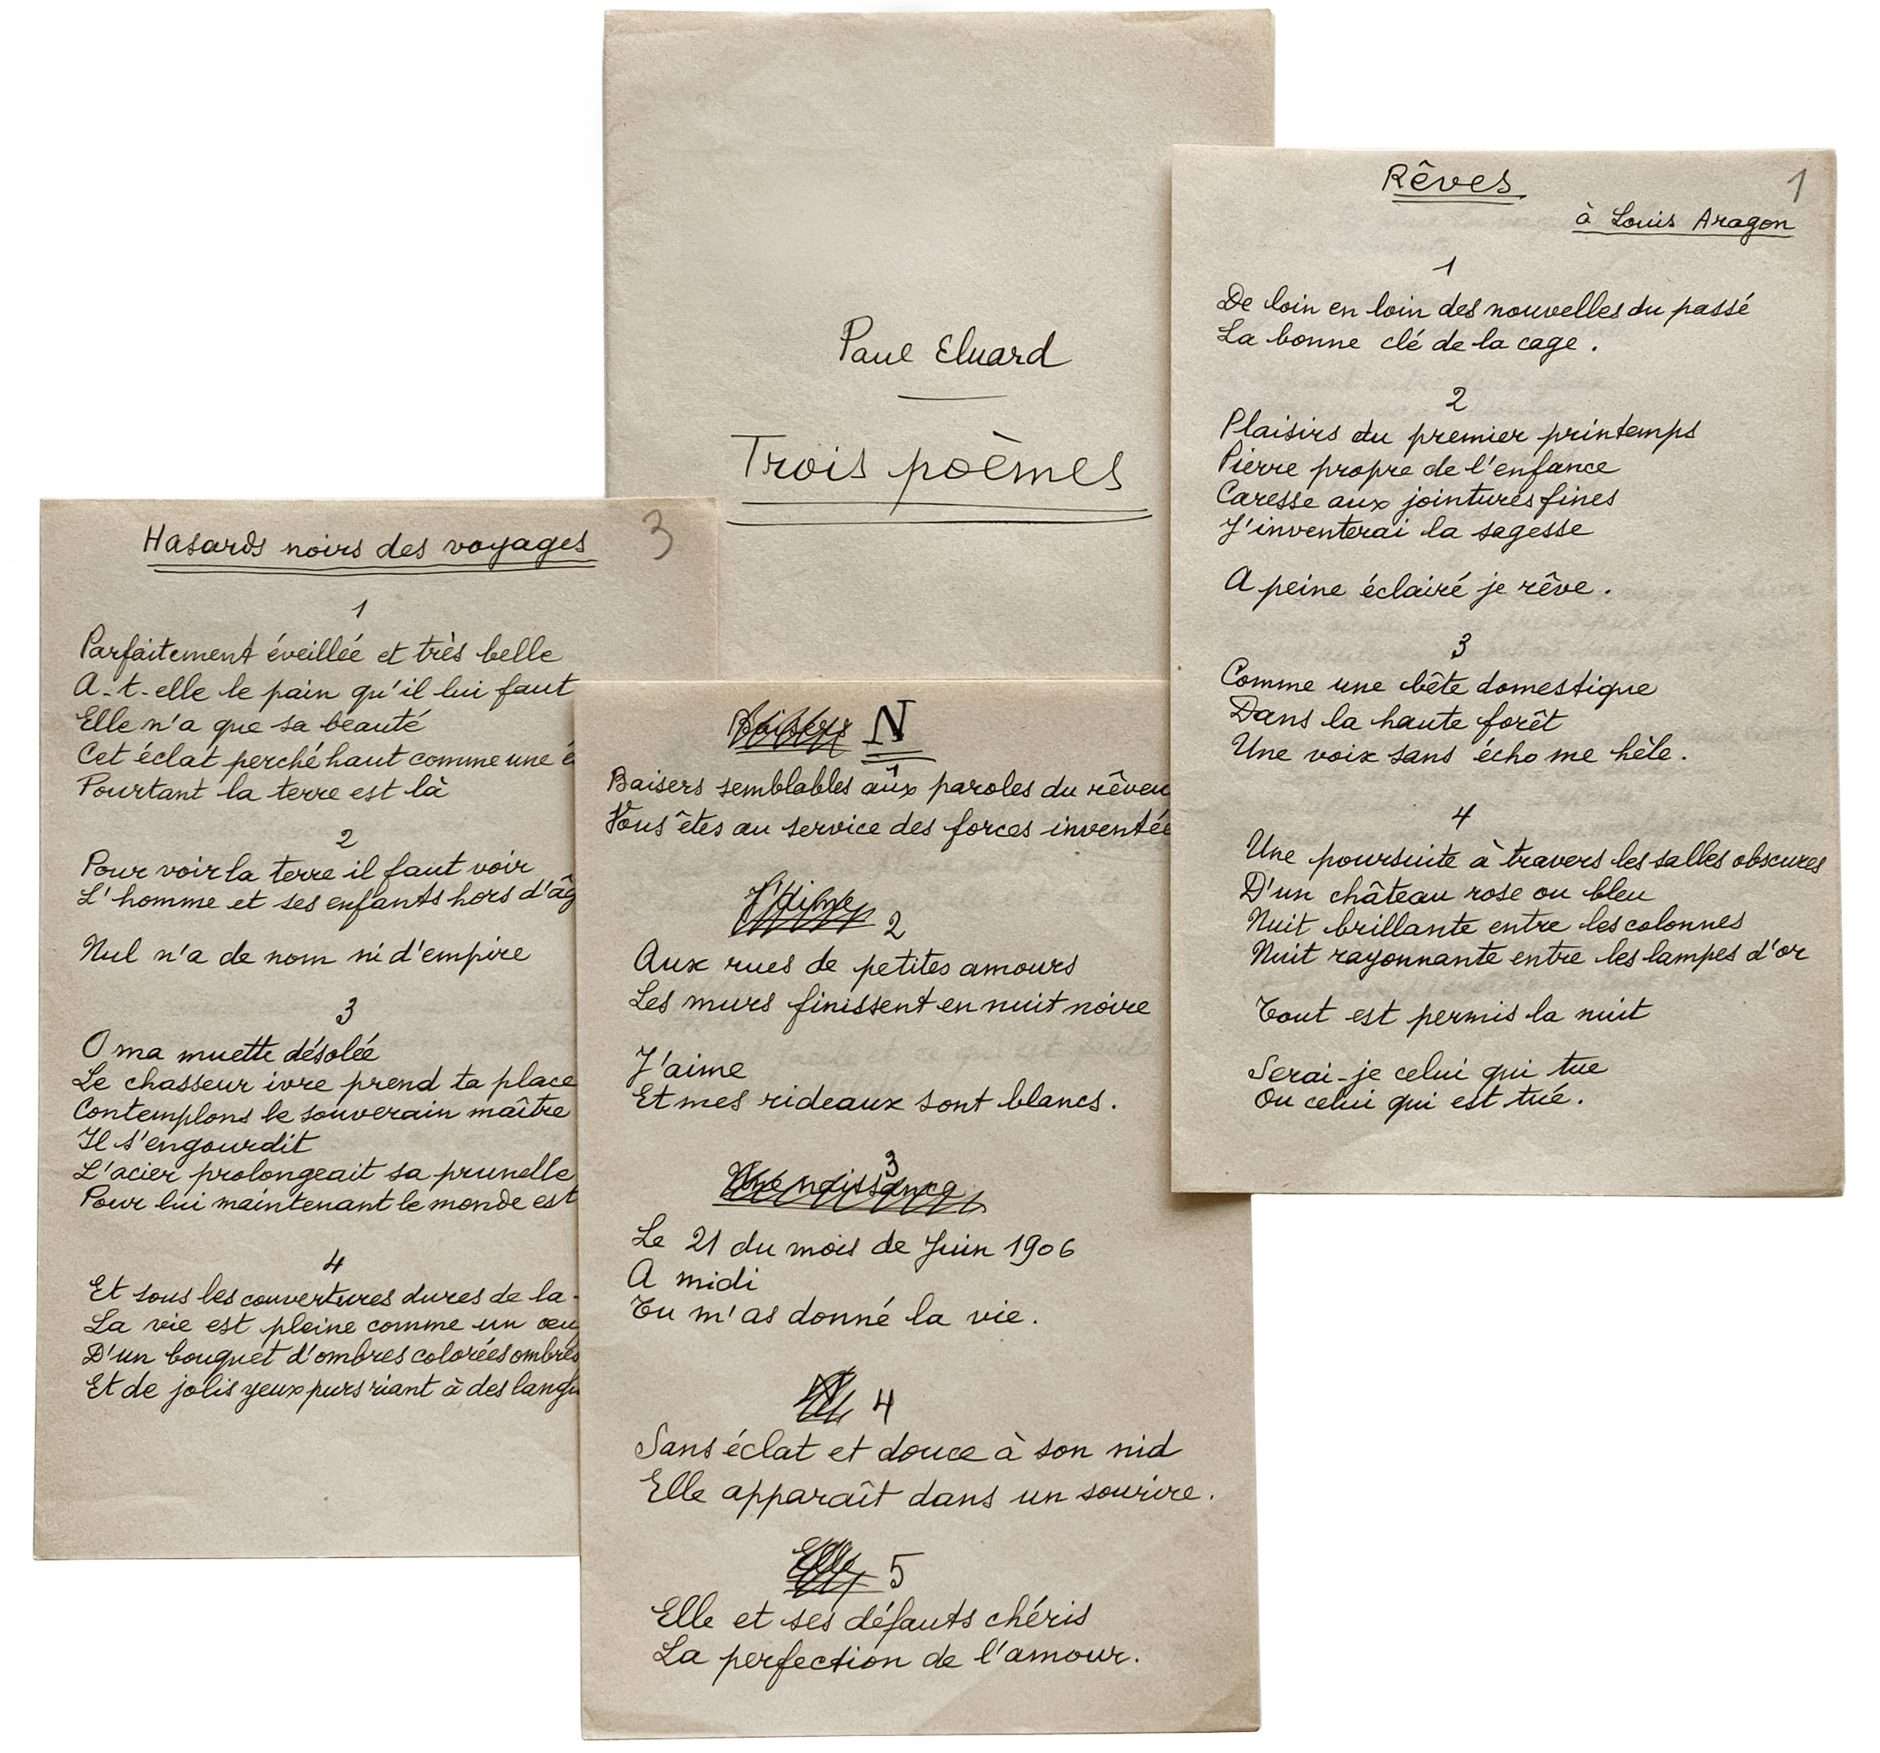 Paul Eluard
Trois poèmes
Rêves
1
à Louis Aragon
1
De loin en loin des nouvelles du passé
La bonne clé de la cage.
2
Plaisirs du premier printemps
Pierre propre de l'enfance
Caresse aux jointures fines
J'inventerai la sagesse
A peine éclairé je rêve.
3
Comme une bête domestique
Dans la haute forêt
Une voix sans écho me hèle.
4
Une poursuite à travers les salles obscures
D'un château rose ou bleu
Nuit brillante entre les colonnes
Nuit rayonnante entre les lampes d'or
Tout est permis la nuit
Serai-je celui qui tue
Ou celui qui est tué.
Hasards noirs des voyages
3
1
Parfaitement éveillée et très belle
A-t-elle le pain qu'il lui faut
Elle n'a que sa beauté
Cet éclat perché haut comme une
Pourtant la terre est là
2
Pour voir la terre il faut voir
L'homme et ses enfants hors
Nul n'a de nom ni d'empire
3
O ma muette désolée
Le chasseur ivre prend ta place
Contemplons le souverain maître
Il s'engourdit
L'acier prolongeait sa prunelle
Pour lui maintenant le monde est
4
Et sous les couvertures dures de la
La vie est pleine comme un
D'un bouquet d'ombres colorées ombres
Et de jolis yeux purs riant à des
Baisers N
Baisers semblables aux paroles du
Vous êtes au service des forces
J'aime 2
Aux rues de petites amours
Les murs finissent en nuit noire
J'aime
Et mes rideaux sont blancs.
Une naissance 3
Le 21 du mois de Juin 1906
A midi
Tu m'as donné la vie.
4
Sans éclat et douce à son nid
Elle apparaît dans un sourire.
Elle 5
Elle et ses défauts chéris
La perfection de l'amour.